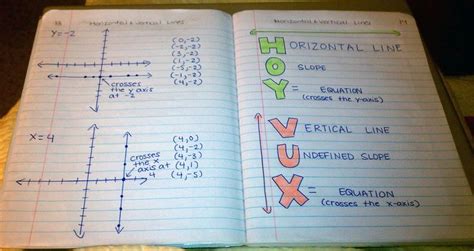 Horizontal & Vertical Lines
y=-2
(0,-2)
(-2,-2)
(3,-2)
(1,-2)
(-5,-2)
(-1,-2)
(4,-2)
crosses
the y axis
at -2
X=4
(4,0)
(4,-2)
(4,-3)
(4,1)
(4,-5)
crosses
the x
axis at
4
Horizontal & Vertical Lines
HORIZONTAL LINE
O SLOPE
Y= EQUATION
(crosses the y-axis)
VERTICAL LINE
UNDEFINED SLOPE
X= EQUATION
(crosses the x-axis)